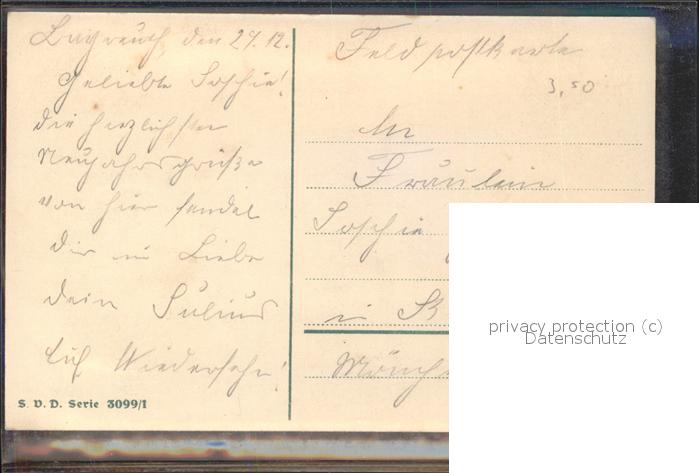 Bayreuth, den 29.12.
Geliebte Sophie!
die herzlichsten
Neujahrsgrüße
von hier sendet
Dir in Liebe
dein Julius
Auf Wiedersehn!
S. V. D. Serie 3099/I
Feldpostkarte
3,50
An
Fräulein
Sophie
in
privacy protection (c)
Datenschutz